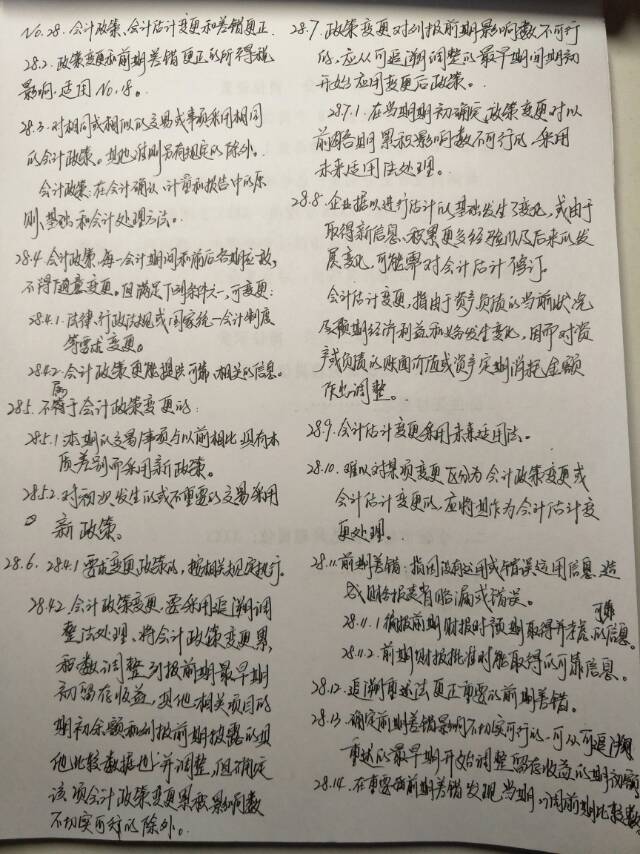 No.28. 会计政策、会计估计变更和差错更正.
28.2. 政策变更和前期差错更正的所得税
影响. 适用No.18。
28.3. 对相同或相似的交易或事项采用相同
的会计政策。其他准则另有规定的除外。
会计政策: 在会计确认、计量和报告中的原
则、基础和会计处理方法。
28.4. 会计政策, 每一会计期间和前后各期应一致,
不得随意变更。但满足下列条件之一, 可变更:
28.4.1. 法律、行政法规或国家统一会计制度
等要求变更。
28.4.2. 会计政策变更能提供可靠、相关的信息。
28.5. 不属于会计政策变更的:
28.5.1 本期的交易/事项与以前相比具有本
质差别而采用新政策。
28.5.2. 对初次发生的或不重要的交易采用
新政策。
28.6. 28.4.1要求变更政策的, 按相关规定执行.
28.4.2. 会计政策变更, 要采用追溯调
整法处理、将会计政策变更累
积数调整列报前期最早期
初留存收益, 其他相关项目的
期初余额和列报前期披露的其
他比较数据也一并调整, 但确定
该项会计政策变更累积影响数
不切实可行的除外。
28.7. 政策变更对列报前期影响数不可行
的. 应从可追溯调整的最早期间期初
开始应用变更后政策。
28.7.1. 在当期期初确定政策变更对以
前各期累积影响数不可行的, 采用
未来适用法处理。
28.8. 企业据以进行估计的基础发生了变化, 或由于
取得新信息、积累更多经验以及后来的发
展变化, 可能需对会计估计修订。
会计估计变更, 指由于资产负债的当前状况
及预期经济利益和义务发生变化, 因而对资
产或负债的账面价值或资产定期消耗金额
作出调整。
28.9. 会计估计变更采用未来适用法。
28.10. 难以对某项变更区分为会计政策变更或
会计估计变更的, 应将其作为会计估计变
更处理.
28.11. 前期差错: 指因没有运用或错误运用信息, 造
成财务报表省略漏或错误。
28.11.1 编报前期财报时预期取得并考虑的可靠信息。
28.11.2. 前期财报批准时能取得的可靠信息。
28.12. 追溯重述法更正重要的前期差错。
28.13. 确定前期差错影响不切实可行的, 可从可追溯
重述的最早期开始调整留存收益的期初余额
28.14. 在重要前期差错发现当期, 调前期比较数